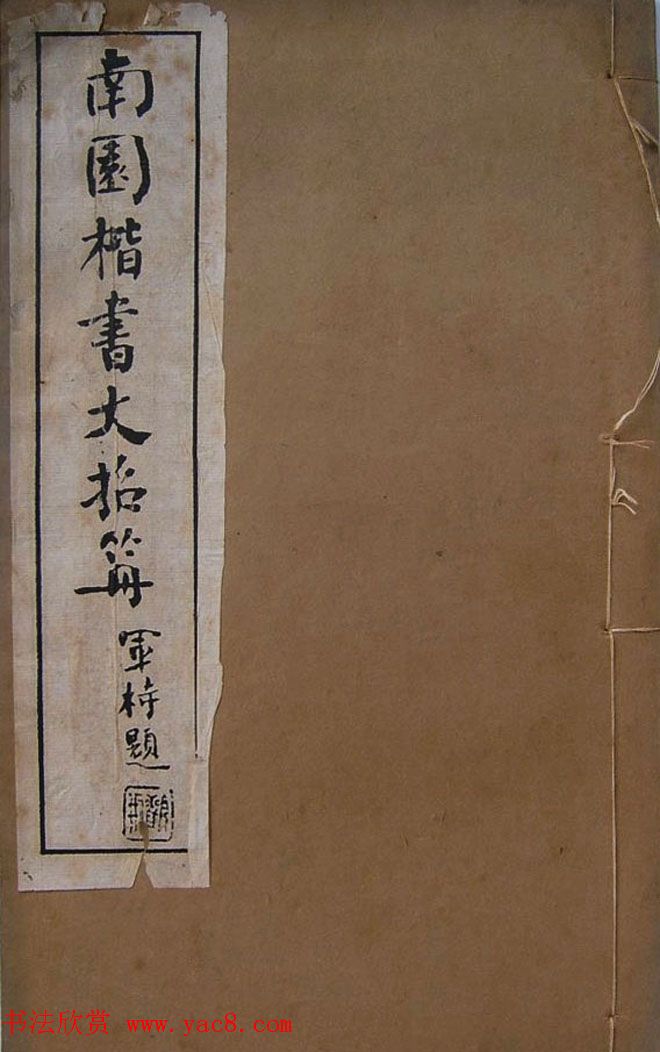 南園楷書大招笧
題
书法欣赏 www.yac8.com